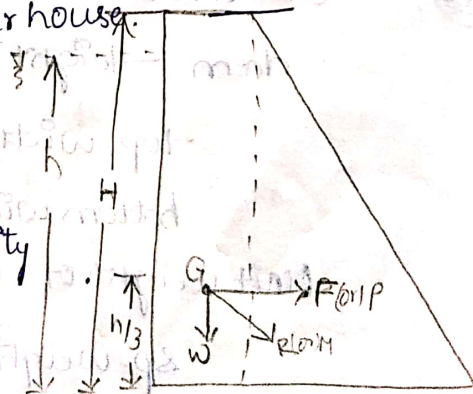 r house.
h
H
ty
G
F(or)P
h/3
W
R(or)M